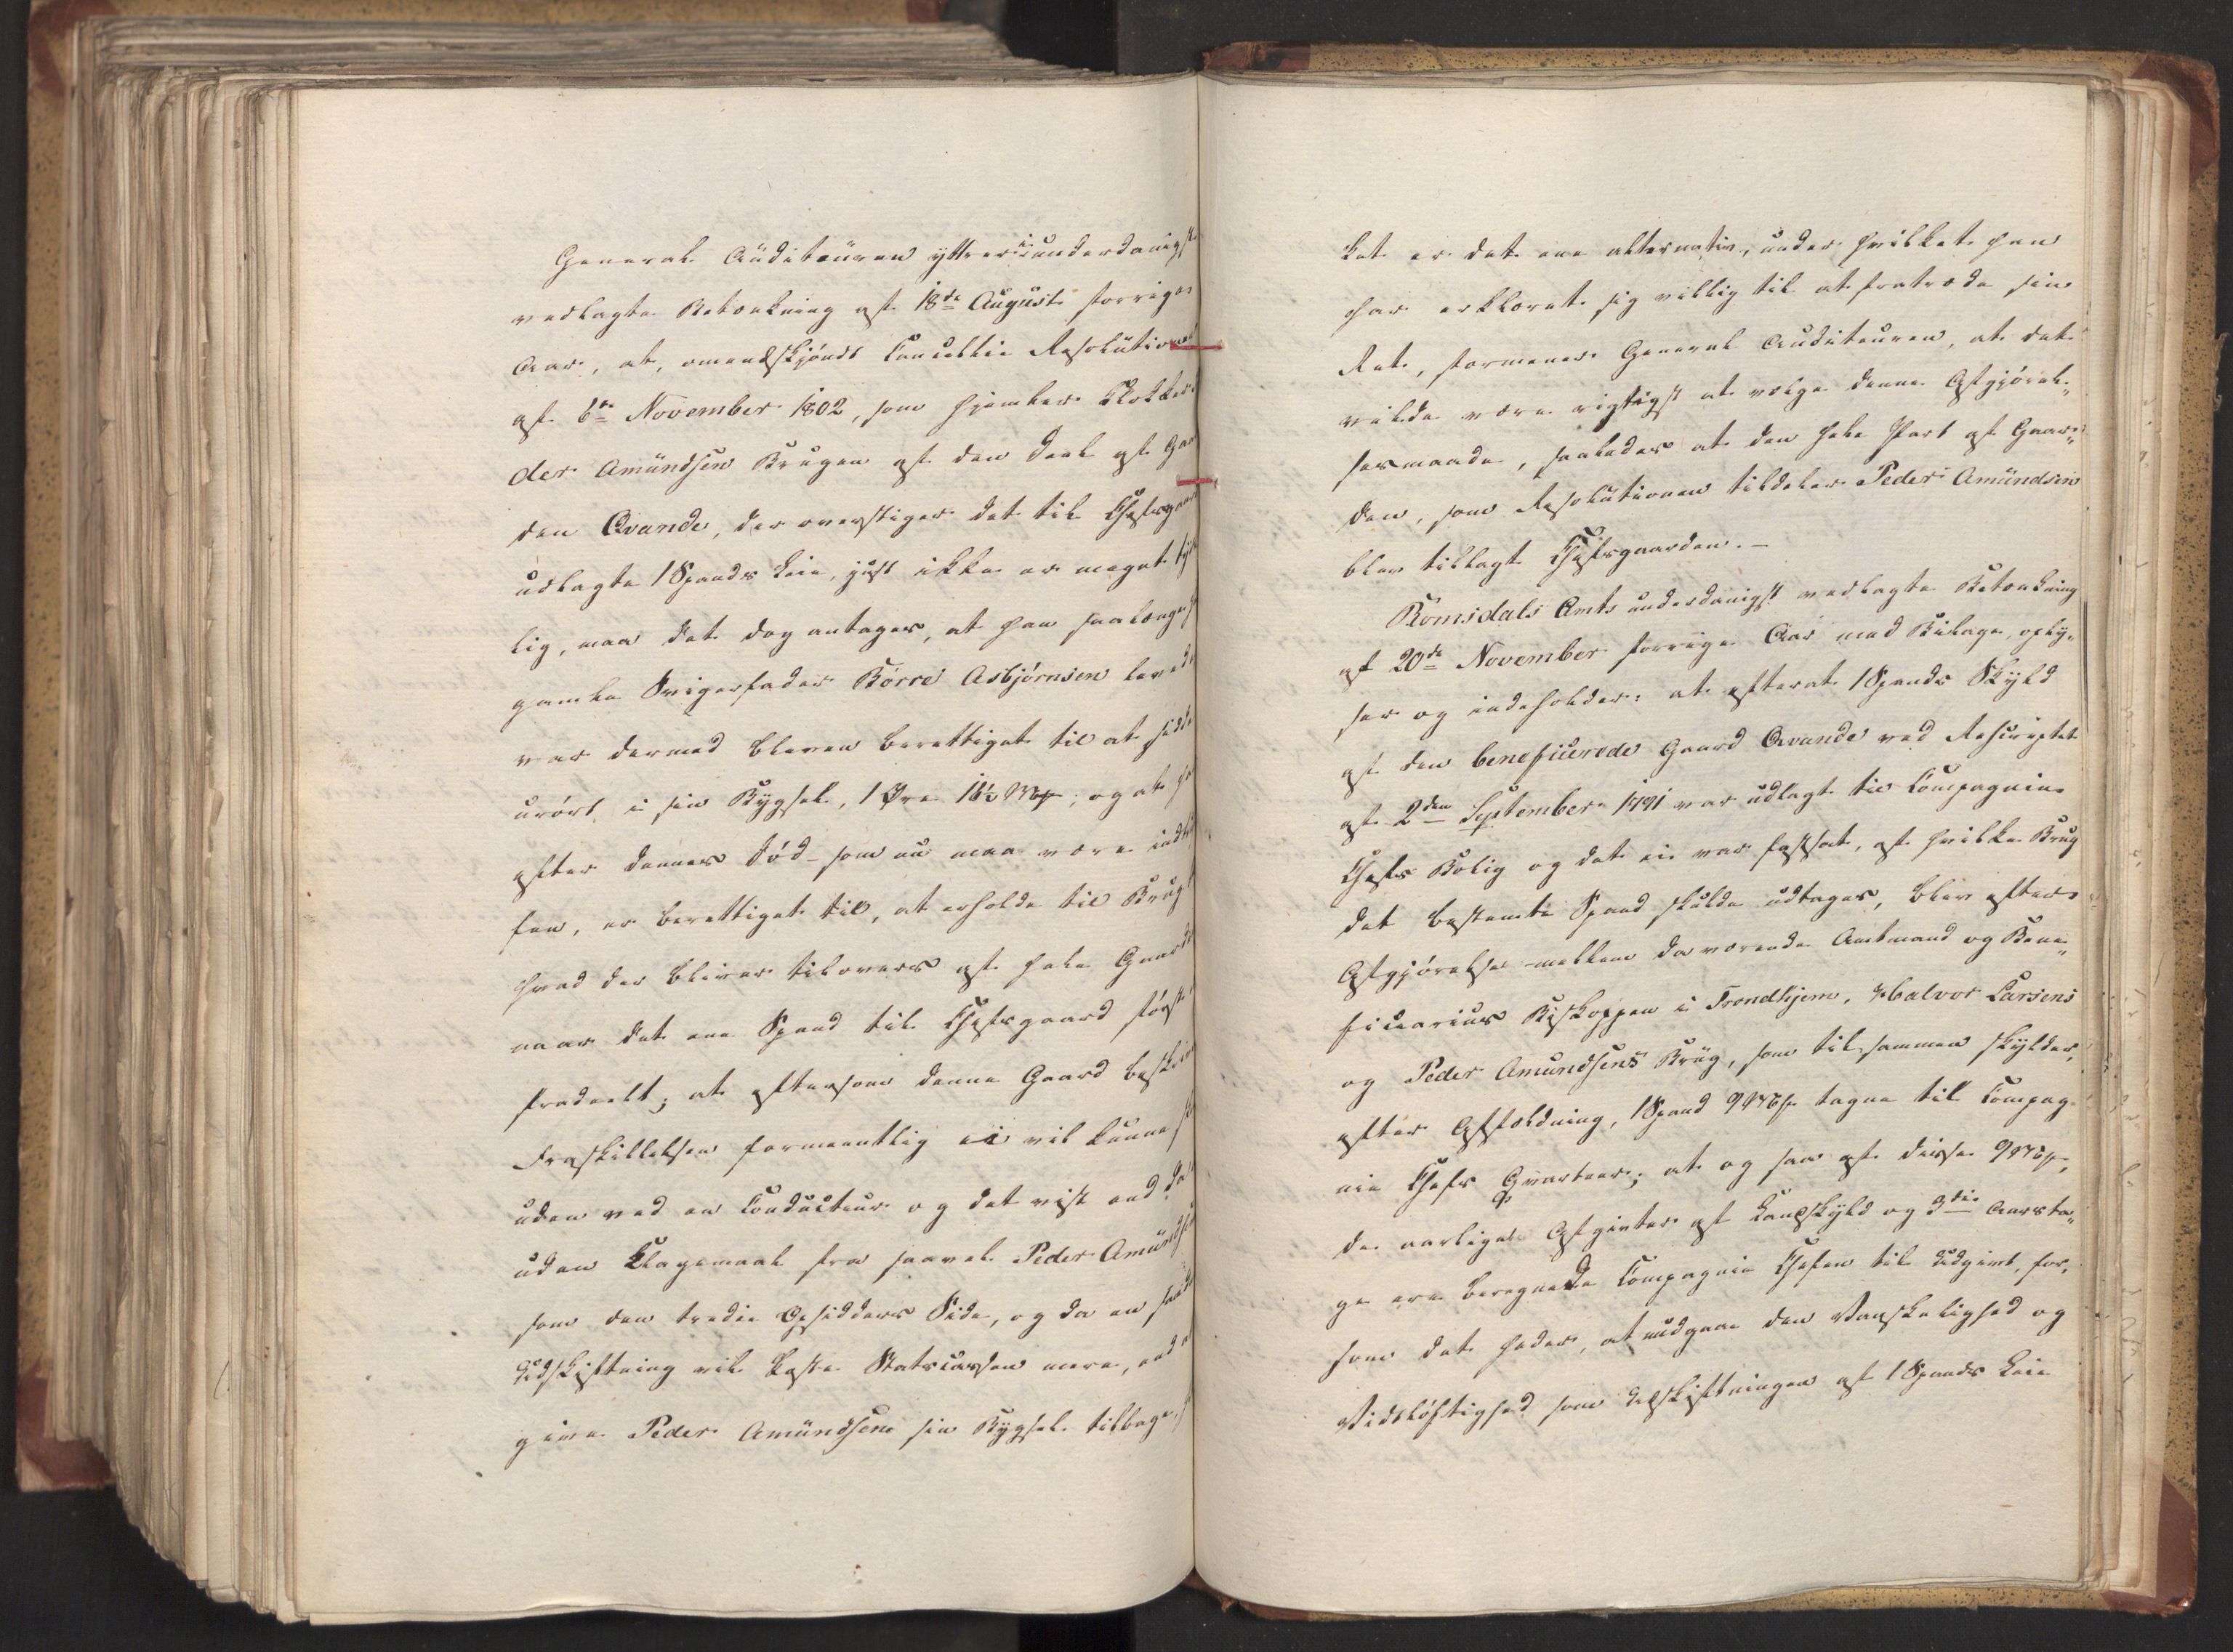 General Auditeuren yttrer i underdanigst
vedlagte Betænkning af 18de August forrige
Aar, at, omendskjöndt Cancellie Resolutionen
af 6te November 1802, som hjemler
der Amundsen Brugen af den Deel af Gaar
den Qvande, der overstiger det til Chefsgaard
udlagte 1 Spands Leie, just ikke er meget tyde
lig, maa det dog antages, at han saalænge
gamle Svigerfader Börre Asbjørnsen levede
var dermed bleven berettiget til at sidde
urört i sin Bygsel, 1 Øre 16½ Mkp; og at
efter dennes Död – som nu maa være
fen, er berettiget til, at erholde til Brug
hvad der bliver tilovers af hele Gaarden
naar det ene Spand til Chefsgaard först
fradeelt; at eftersom denne Gaard
Fraskillelsen formeentlig ei vil kunne
uden ved en Conducteur og det vist end da
uden Klagemaal fra saavel Peder Amunds
som den tredie Opsidders Side, og da en
Udskiftning vil koste Statscassen mere, end
give Peder Amundsen sin Bygsel tilbage,
ket er det ene alternativ, under hvilket han
har erklæret sig villig til at fratræde sin
Ret, formener General Auditeuren, at det
vilde være rigtigst at vælge denne Afgjörel„
sesmaade, saaledes at den hele Part af Gaar„
den, som Resolutionen tildeler Peder Amundsen
blev tillagt Chefsgaarden. –
Romsdals Amts underdanigst vedlagte Betænkning
af 20de November forrige Aar med Bilage, oply„
ser og indeholder: at efterat 1 Spands Skyld
af den beneficerede Gaard Qvande ved Rescriptet
af 2den September 1791 var udlagt til Compagnie
Chefs Bolig og det ei var fastsat, af hvilke Brug
det bestemte Spand skulde udtages, blev efter
Afgjörelse mellem da værende Amtmand og Bene„
ficiarius Biskoppen i Trondhjem, Halvor Larsens
og Peder Amundsens Brug, som tilsammen skylder,
efter Affældning, 1 Spand 9 Mkp tagne til Compag„
nie Chefs Qvarteer; at og saa af disse 9 Mkp,
de aarlige Afgivter af Landskyld og 3die Aarsta„
ge ere beregnede Compagnie Chefen til Udgivt, for,
som det heder, at undgaae den Vanskelighed og
Vidtlöftighed som Udskiftningen af 1 Spands Leie